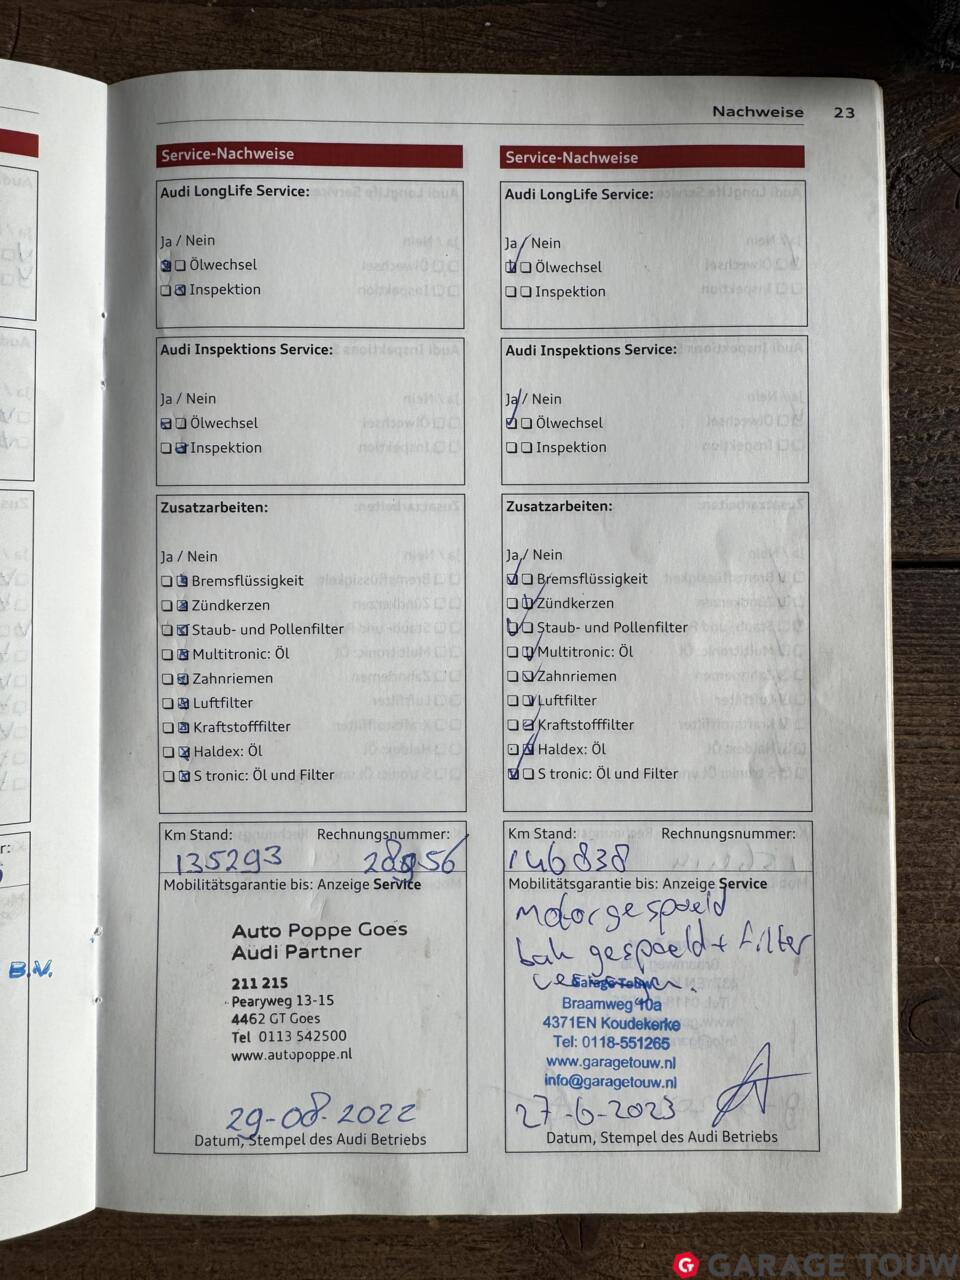 Nachweise 23
Service-Nachweise
Audi LongLife Service:
Ja / Nein
Ölwechsel
Inspektion
Audi Inspektions Service:
Ja / Nein
Ölwechsel
Inspektion
Zusatzarbeiten:
Ja / Nein
Bremsflüssigkeit
Zündkerzen
Staub- und Pollenfilter
Multitronic: Öl
Zahnriemen
Luftfilter
Kraftstofffilter
Haldex: Öl
S tronic: Öl und Filter
Km Stand: Rechnungsnummer:
135293
Mobilitätsgarantie bis: Anzeige Service
Auto Poppe Goes
Audi Partner
211 215
Pearyweg 13-15
4462 GT Goes
Tel 0113 542500
www.autopoppe.nl
29-08-2022
Datum, Stempel des Audi Betriebs
Service-Nachweise
Audi LongLife Service:
Ja / Nein
Ölwechsel
Inspektion
Audi Inspektions Service:
Ja / Nein
Ölwechsel
Inspektion
Zusatzarbeiten:
Ja / Nein
Bremsflüssigkeit
Zündkerzen
Staub- und Pollenfilter
Multitronic: Öl
Zahnriemen
Luftfilter
Kraftstofffilter
Haldex: Öl
S tronic: Öl und Filter
Km Stand: Rechnungsnummer:
146838
Mobilitätsgarantie bis: Anzeige Service
Motor gespoeld
bak gespoeld + filter
Garage Touw
Braamweg 10a
4371EN Koudekerke
Tel: 0118-551265
www.garagetouw.nl
info@garagetouw.nl
27-6-2023
Datum, Stempel des Audi Betriebs
B.V.
GARAGE TOUW